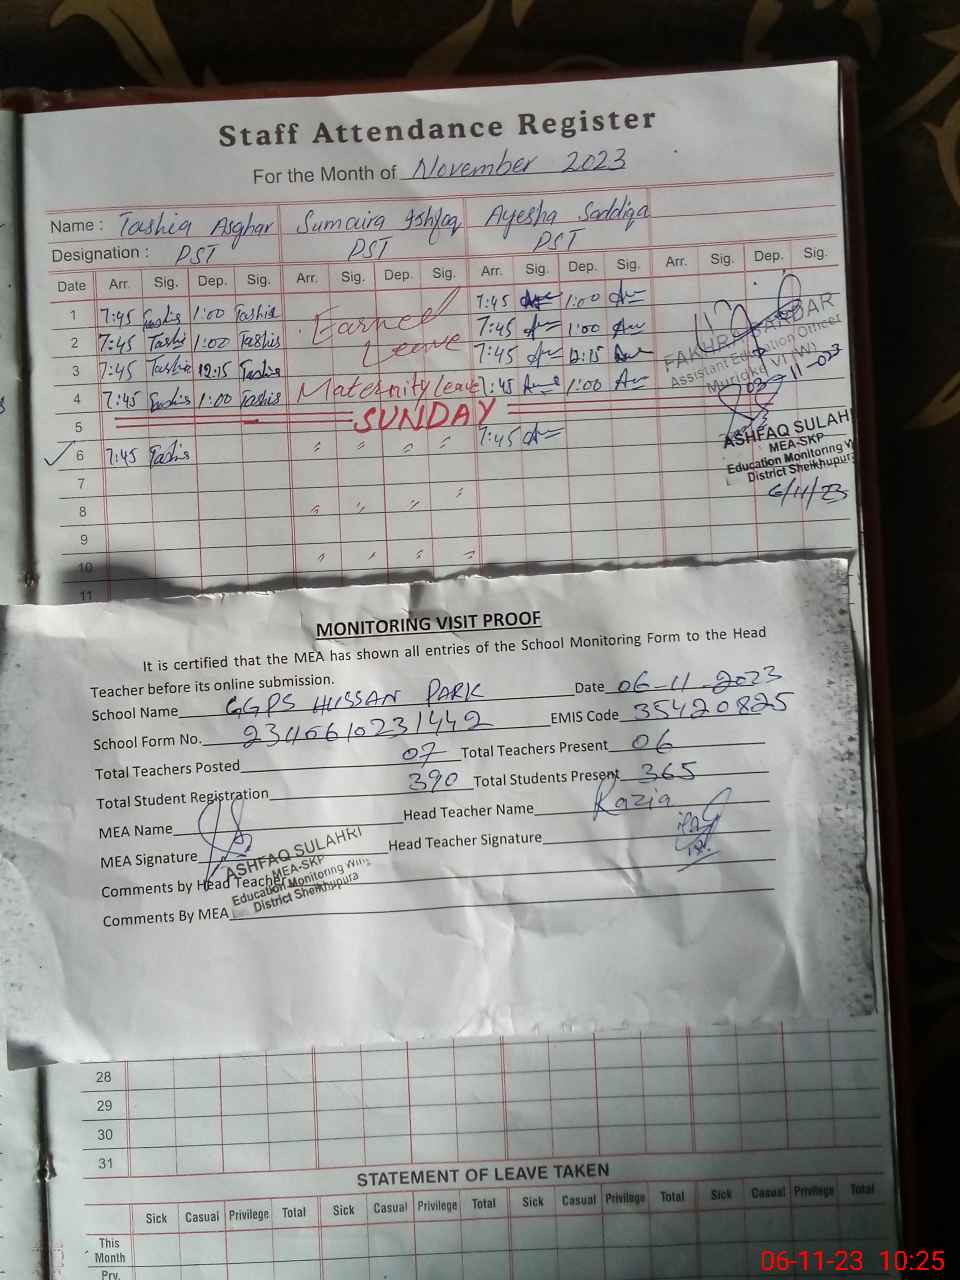 Staff Attendance Register
For the Month of November 2023
Name : Tashia Asghar Sumaira Ishfaq Ayesha Saddiqa
Designation : PST PST PST
Date Arr. Sig. Dep. Sig. Arr. Sig. Dep. Sig. Arr. Sig. Dep. Sig. Arr. Sig. Dep. Sig.
1 7:45 Tashia 1:00 Tashia Earned 7:45 1:00
2 7:45 Tashia 1:00 Tashia Leave 7:45 1:00
3 7:45 Tashia 12:15 Tashia 7:45 12:15
4 7:45 Tashia 1:00 Tashia Maternity Leave 7:45 1:00
FAKHRA
Assistant Education Officer
Muridke VI (W)
03-11-023
5 SUNDAY
6 7:45 Tashia " " " " 7:45
ASHFAQ SULAHRI
MEA-SKP
Education Monitoring Wing
District Sheikhupura
6/11/23
7
8 " " " "
9
10 " " " "
11
MONITORING VISIT PROOF
It is certified that the MEA has shown all entries of the School Monitoring Form to the Head
Teacher before its online submission.
School Name GGPS HUSSAN PARK Date 06-11-2023
School Form No. 23110610231442 EMIS Code 35420825
Total Teachers Posted 07 Total Teachers Present 06
Total Student Registration 390 Total Students Present 365
MEA Name Head Teacher Name Razia
MEA Signature Head Teacher Signature
ASHFAQ SULAHRI
MEA-SKP
Education Monitoring Wing
District Sheikhupura
Comments by Head Teacher
Comments By MEA
28
29
30
31
STATEMENT OF LEAVE TAKEN
Sick Casual Privilege Total Sick Casual Privilege Total Sick Casual Privilege Total Sick Casual Privilege Total
This
Month
Prv.
06-11-23 10:25